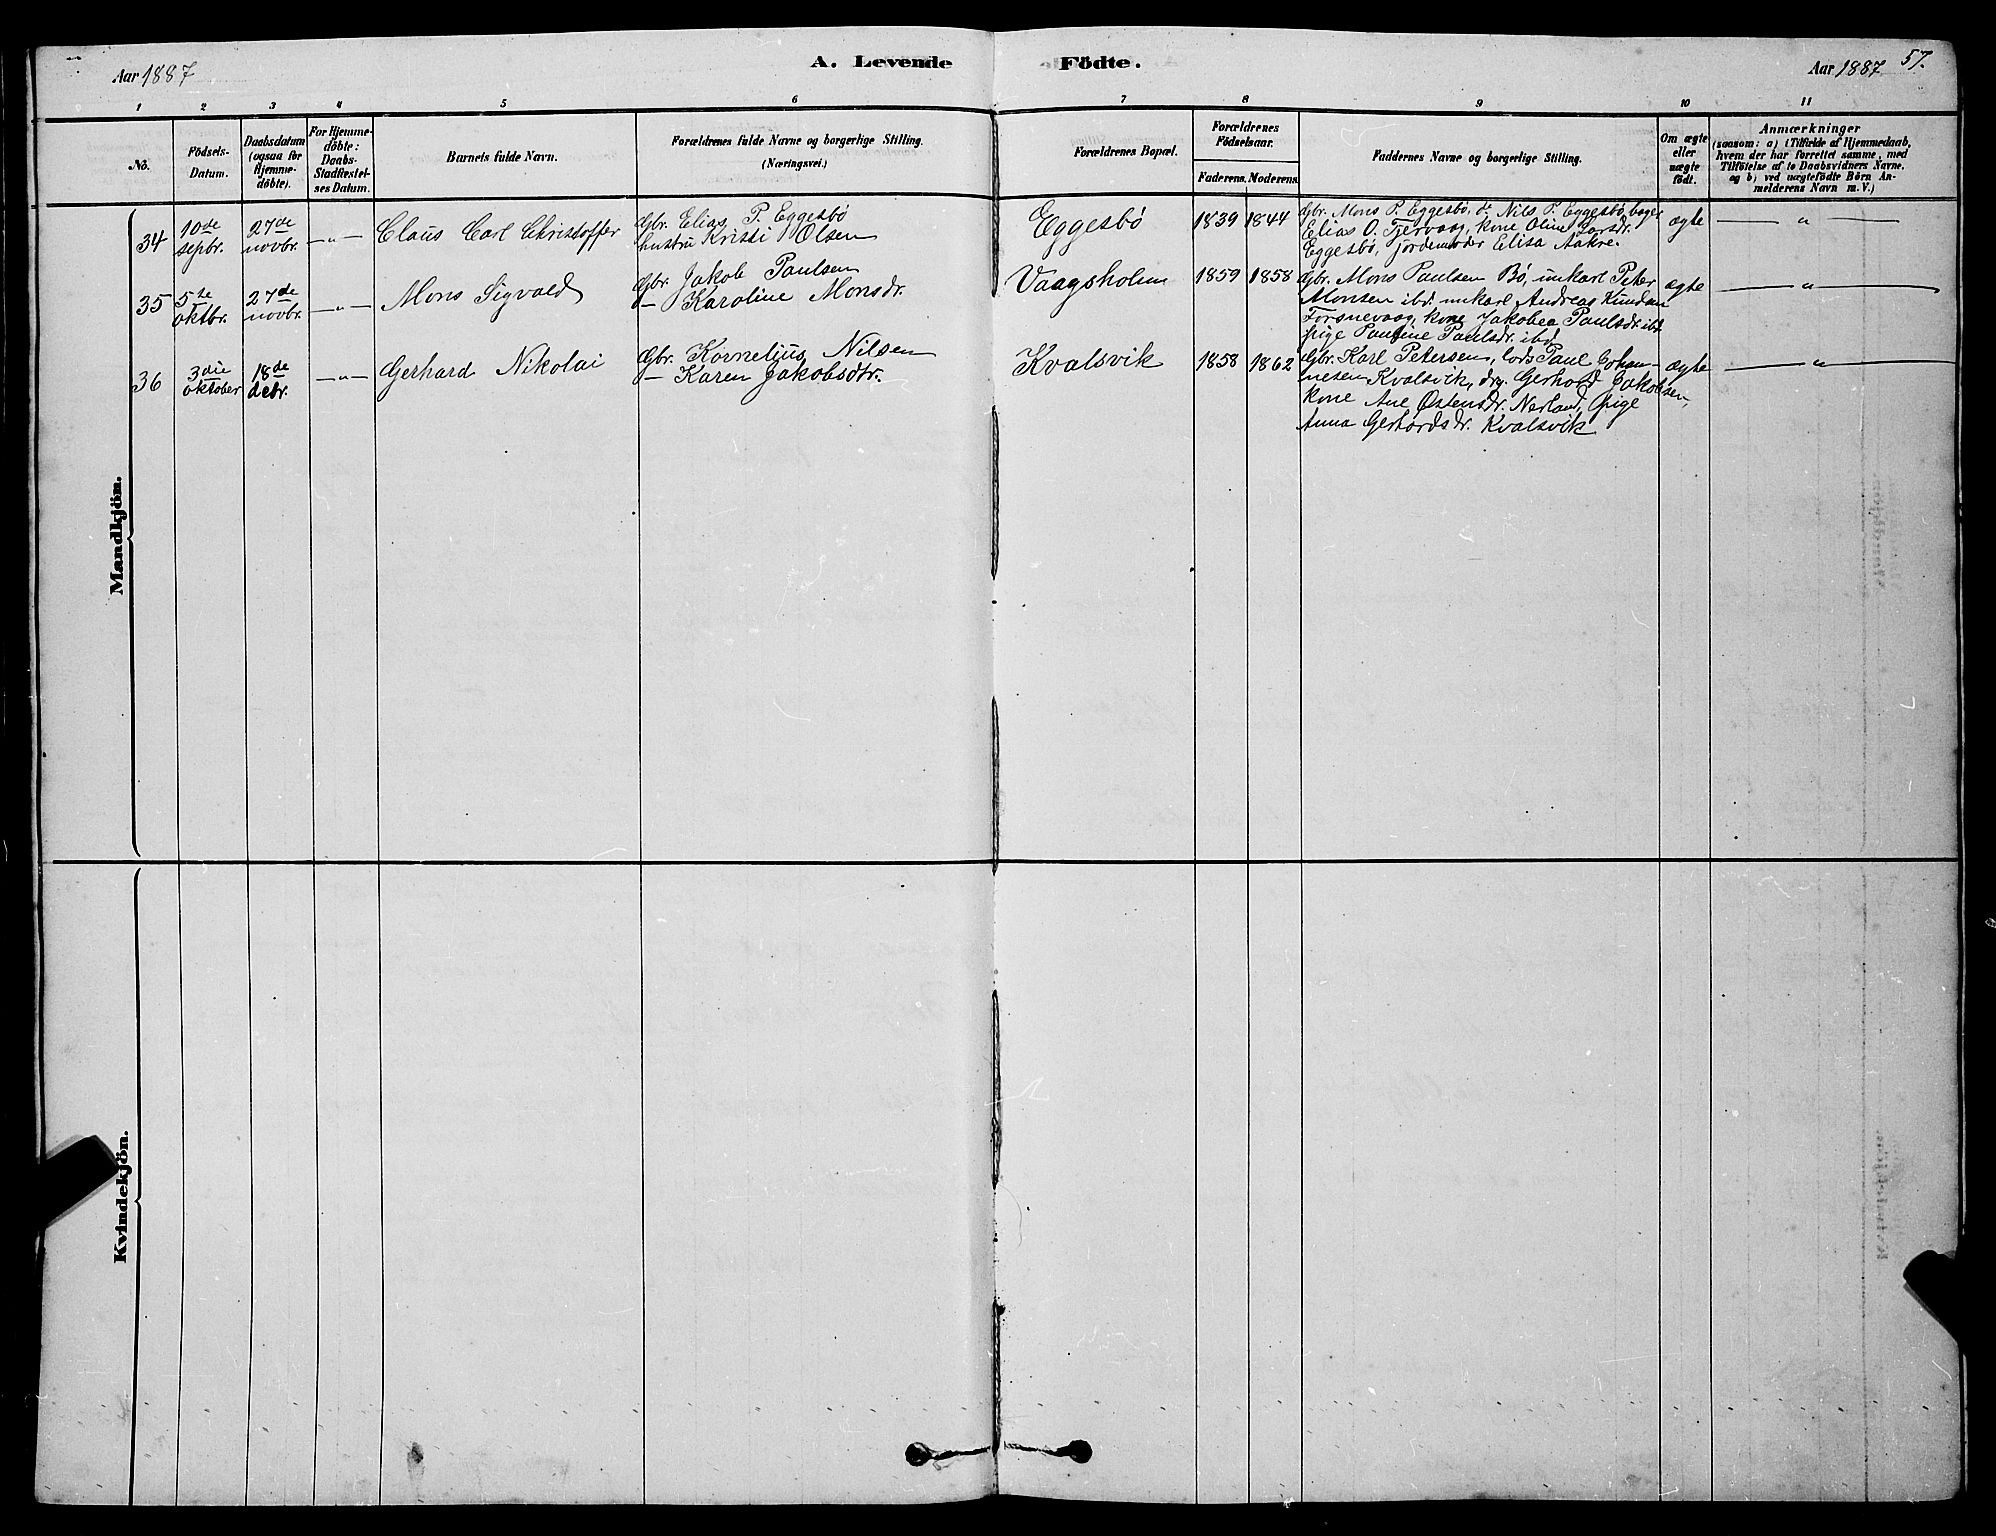 Aar 1887
A. Levende Födte.
Aar 1887
57.
1 2 3 4 5 6 7 8 9 10 11
No.
Födsels-
Datum.
Daabsdatum
(ogsaa for
Hjemme-
döbte).
For Hjemme-
döbte:
Daabs-
Stadfæstel-
ses Datum.
Barnets fulde Navn.
Forældrenes fulde Navne og borgerlige Stilling.
(Næringsvei.)
Forældrenes Bopæl.
Forældrenes
Födselsaar.
Faderens. Moderens.
Faddernes Navne og borgerlige Stilling.
Om ægte
eller
uægte
født.
Anmærkninger
(saasom: a) i Tilfælde af Hjemmedaab,
hvem der har forrettet samme, med
Tilföielse af to Daabsvidners Navne.
og b) ved uægtefödte Börn An-
melderens Navn m. V.)
Mandkjön.
34
10de
sepbr.
27de
novbr.
—"—
Claus Carl Christoffer
Gbr. Elias P. Eggesbö
hustru Kristi Olsen
Eggesbö
1839
1844
Gbr. Mons P. Eggesbö, do Nils P. Eggesbö, bager
Elias O. Tjervaag, kone Oline Larsdr.
Eggesbö, jordemoder Elisa Aakre.
ægte
— " —
35
5te
oktbr.
27de
novbr.
—"—
Mons Sigvald
Gbr. Jakob Paulsen
— Karoline Monsdr.
Vaagsholm
1859
1858
Gbr. Mons Paulsen Bö, unkarl Peter
Monsen ibd. unkarl Andreas Knudsen
Torsnevaag, kone Jakobea Paulsdr. ibd.
pige Pauline Paulsdr. ibd.
ægte
— " —
36
3die
oktober
18de
debr.
—"—
Gerhard Nikolai
Gbr. Kornelius Nilsen
— Karen Jakobsdtr.
Kvalsvik
1858
1862
Gbr. Karl Petersen, lods Paul Johan-
nesen Kvalsvik, drg. Gerhold Jakobsen,
kone Ane Östensdr. Nerland, pige
Anna Gerhardsdr. Kvalsvik
ægte
— " —
Kvindekjön.